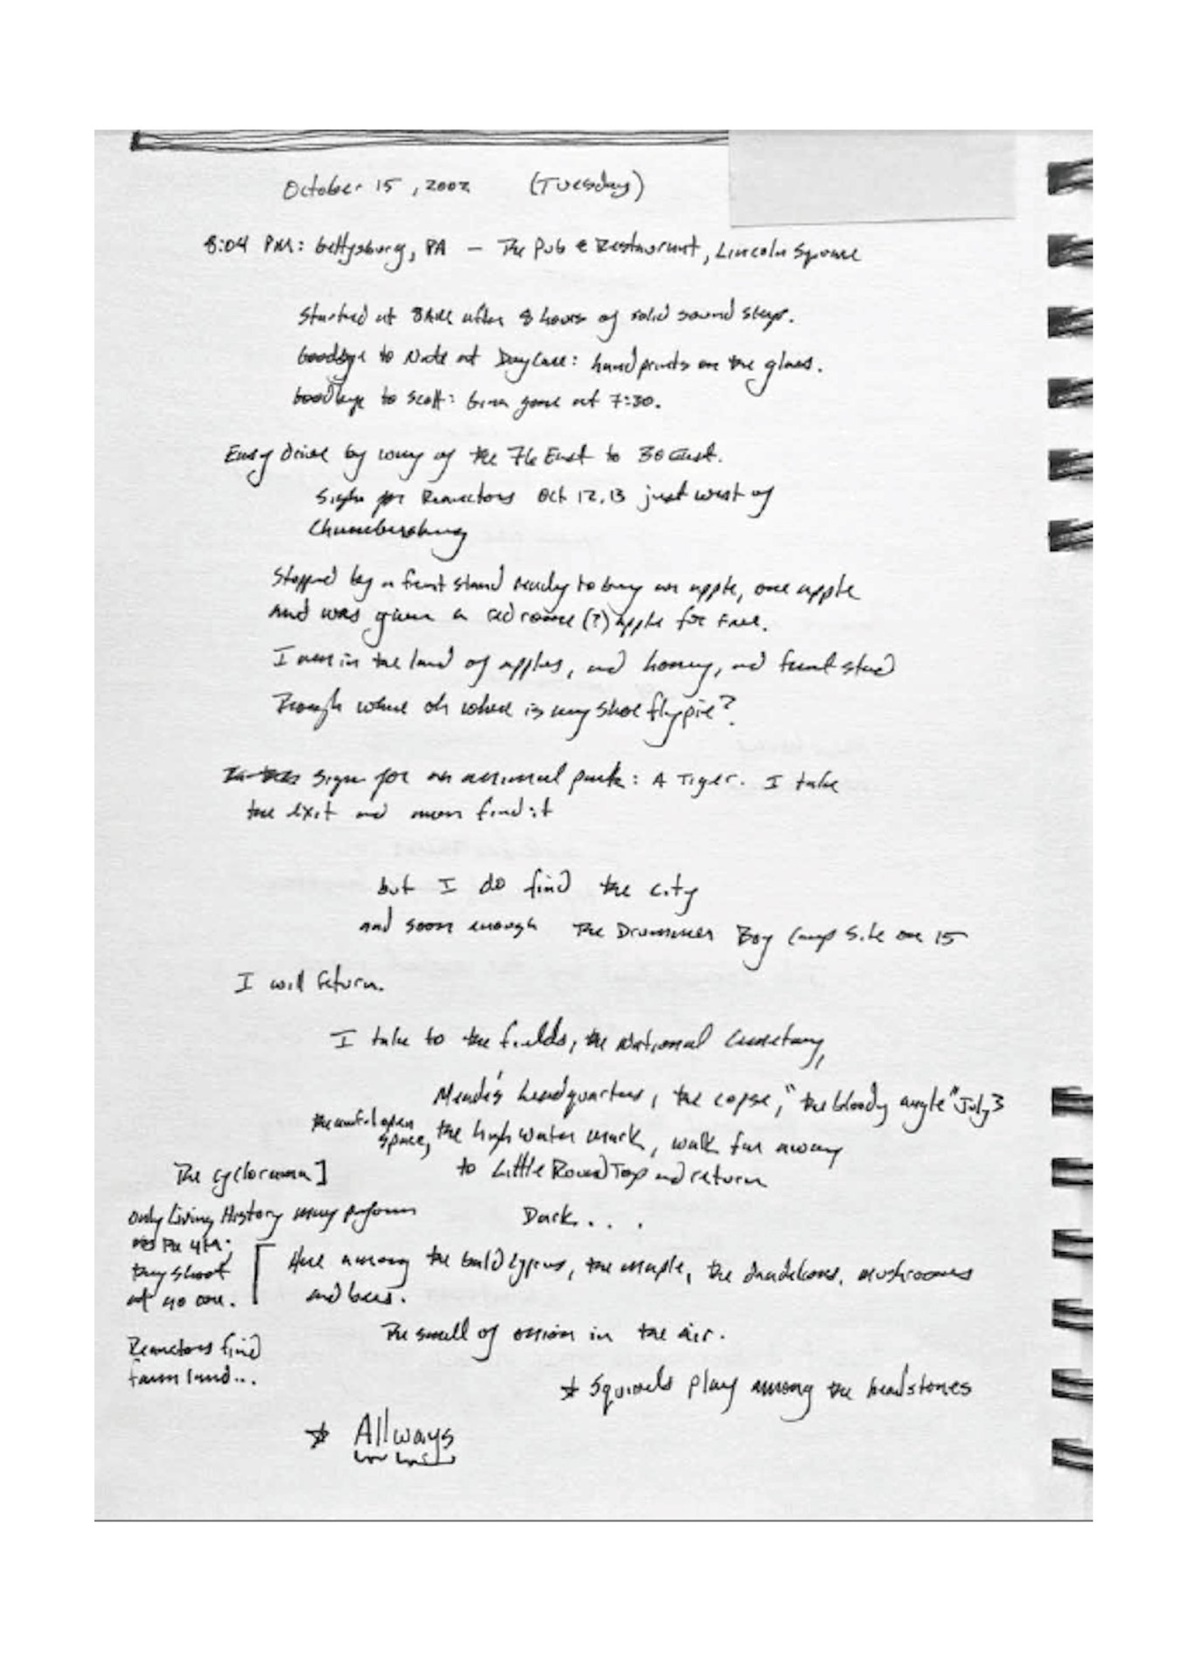 October 15, 2002 (Tuesday)
8:04 PM: Gettysburg, PA — The Pub & Restaurant, Lincoln Square
Started at 8AM after 8 hours of solid sound sleep.
Goodbye to Nate at DayCare: handprints on the glass.
Goodbye to Scott: Gina gone at 7:30.
Easy drive by way of the 76 East to 30 East.
Signs for Reanactors Oct 12, 13 just west of
Chambersburg
Stopped by a fruit stand ready to buy an apple, one apple
and was given a red rome (?) apple for free.
I am in the land of apples, and honey, and fruit stand
Though where oh where is my shoe fly pie?
Sign for an animal park: A Tiger. I take
the exit and never find it
but I do find the city
and soon enough The Drummer Boy Camp Site on 15
I will return.
I take to the fields, the National Cemetary,
Meade's headquarters, the copse, "the bloody angle" July 3
the awful open
space, the high water mark, walk far away
to Little Round Top and return
The cyclorama]
only Living History may perform
Dark...
they shoot
at no one.
Here among the bald cyprus, the maple, the dandelions, mushrooms
and bees.
The smell of onion in the air.
Reanactors find
farm land...
* Squirrels play among the headstones
* Allways